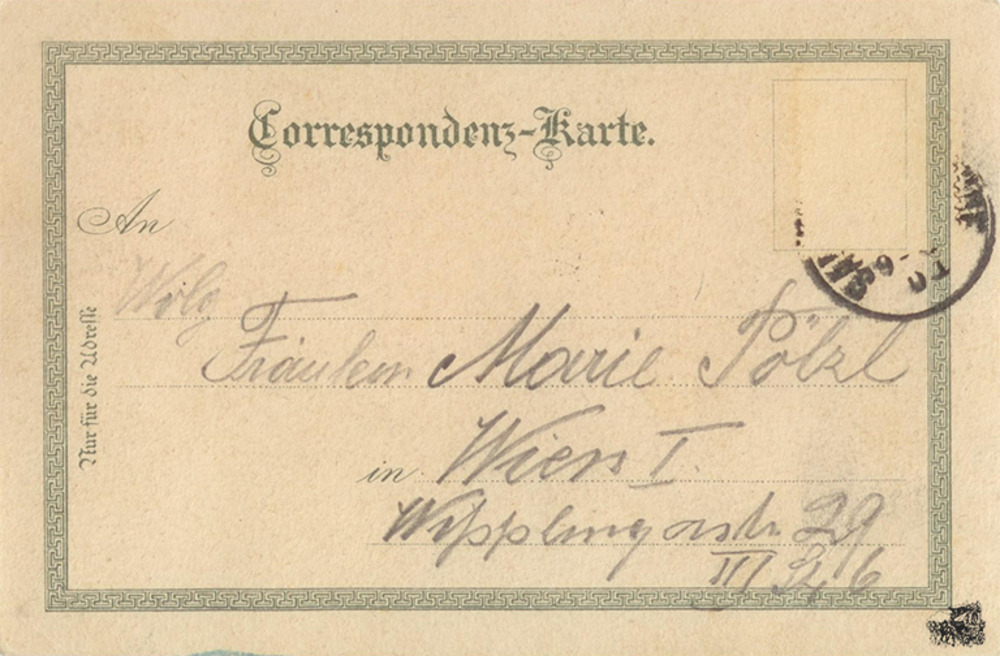 Correspondenz-Karte.
An
Nur für die Adresse
Fräulein Marie Pölzl
in Wien I.
Wipplingerstr. 29
III St, 6